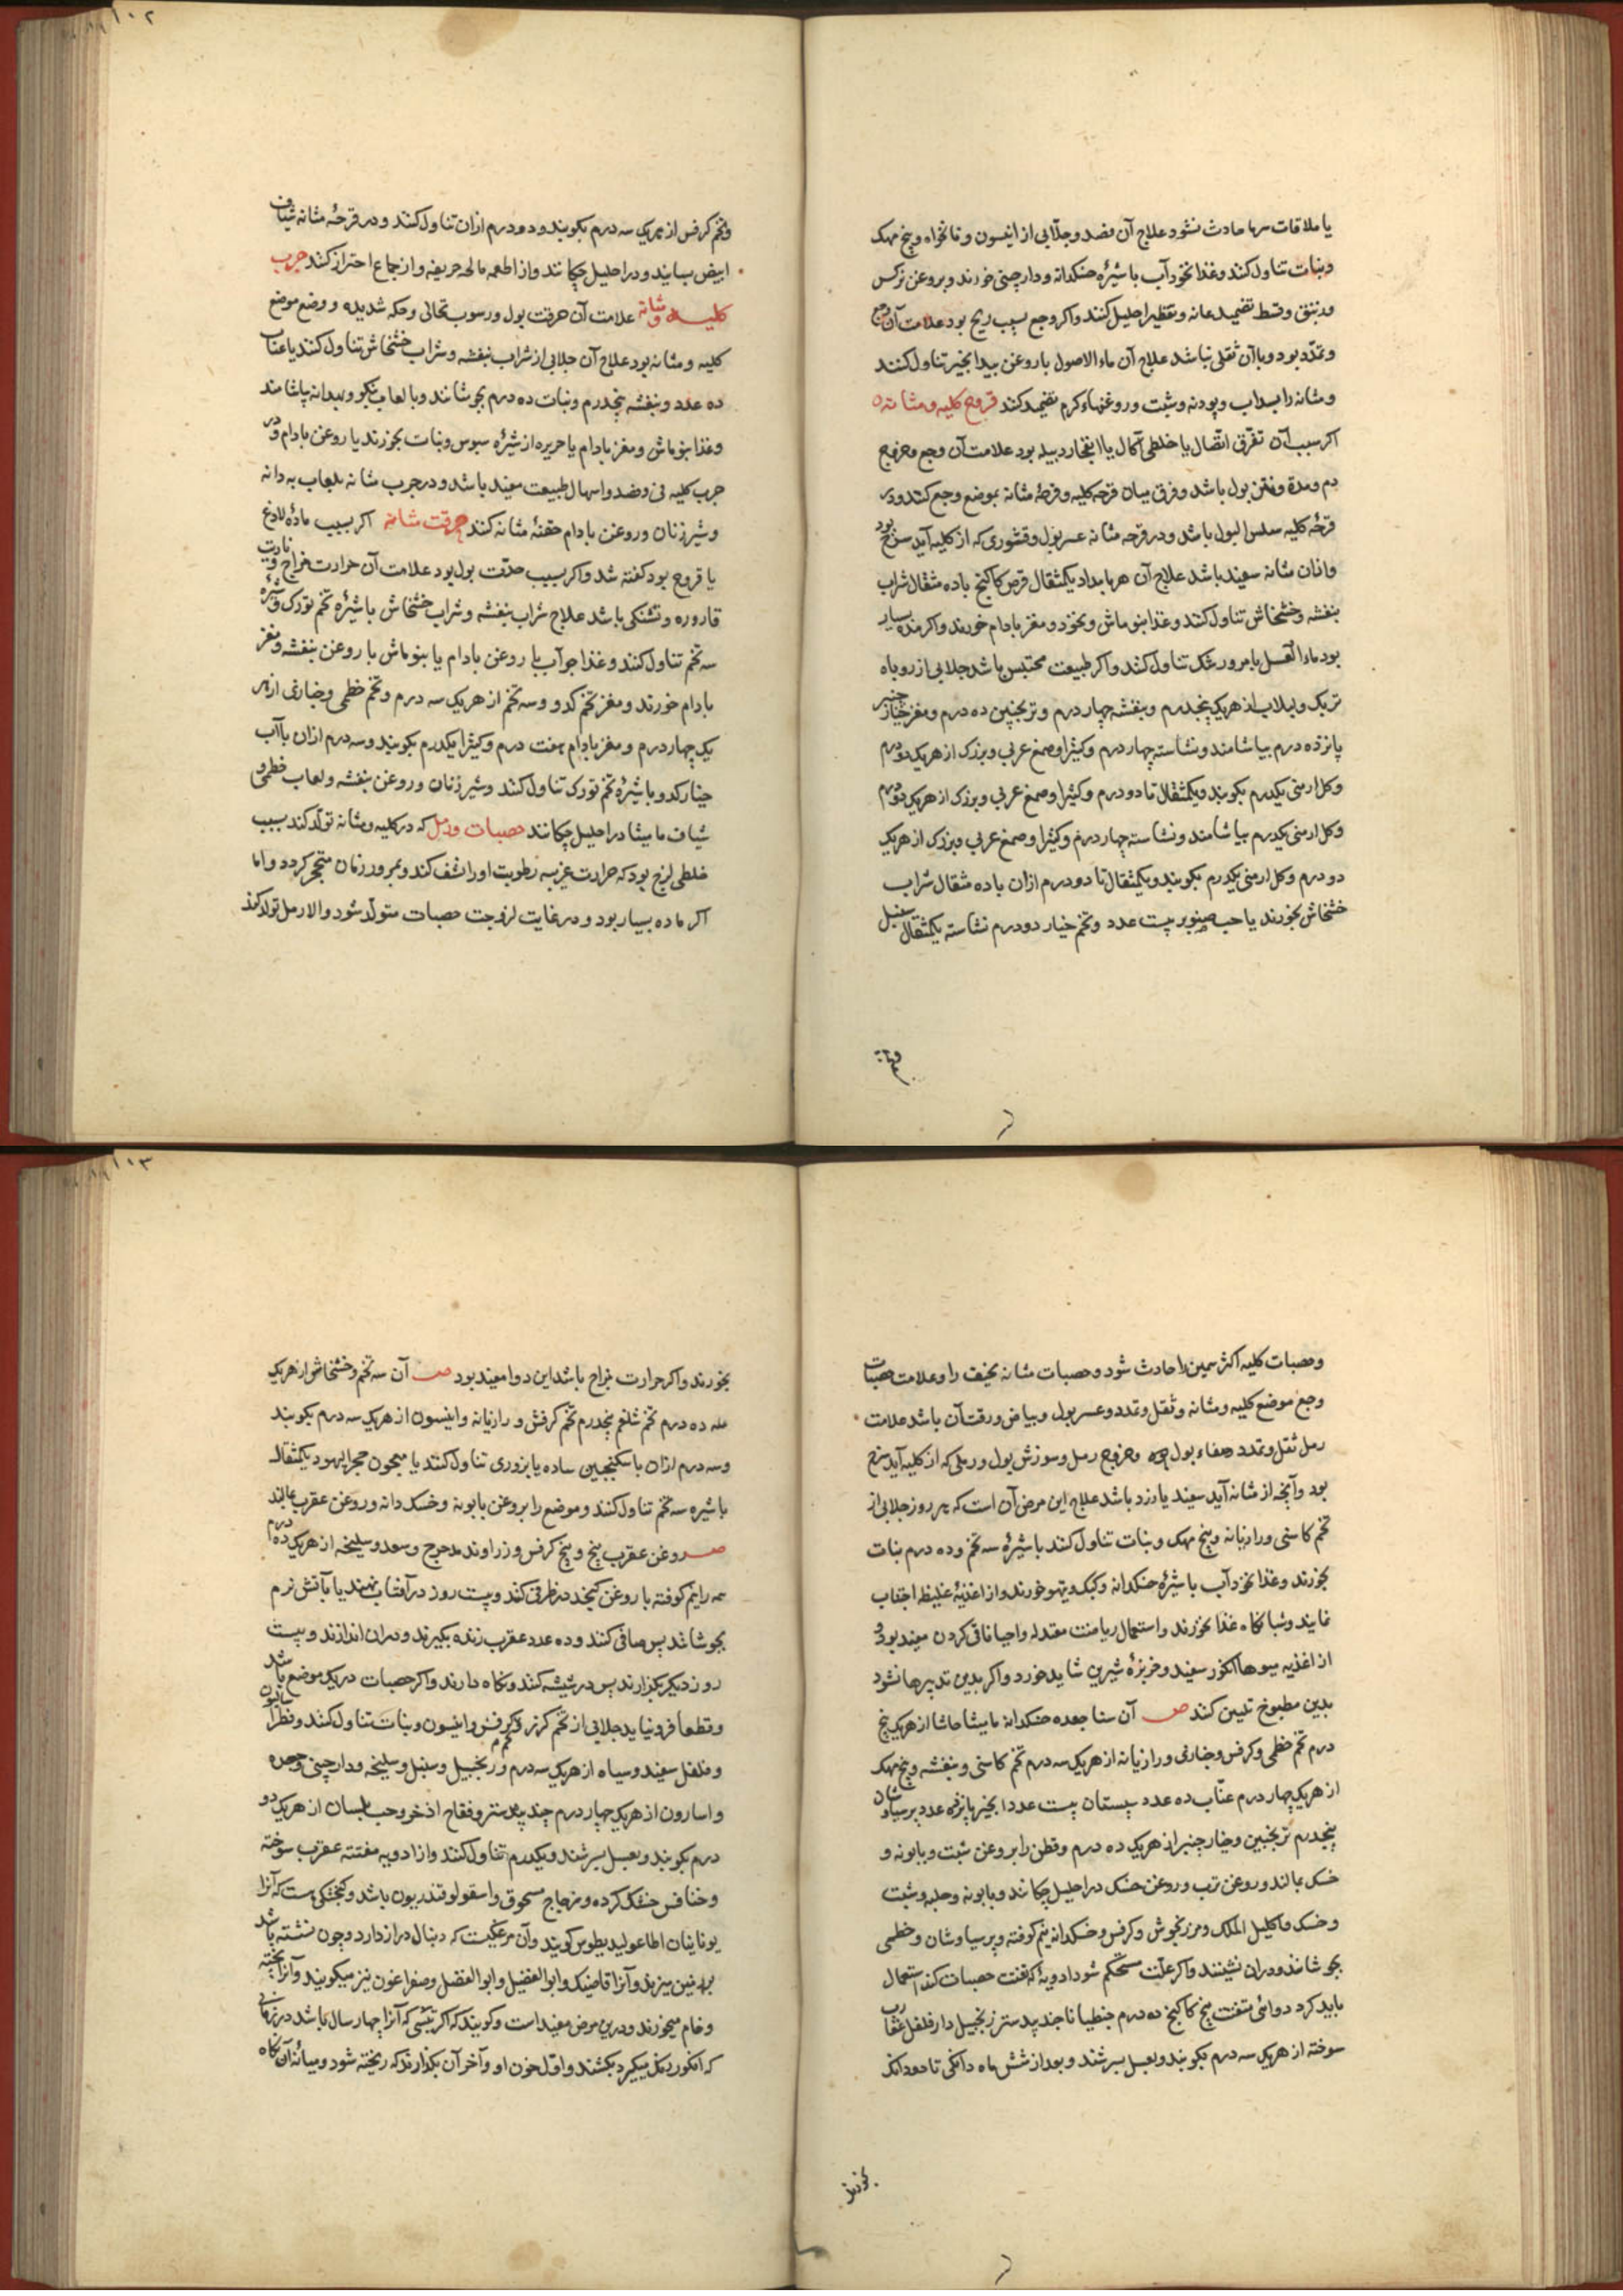 یا ملاقات سرما حادث نشود علاج آن فصد و جلابی از انیسون و نانخواه و بیخ مهک
و نبات تناول کنند و غذا نخودآب با شیرهٔ خسکدانه و دارچینی خورند و بروغن نرکس
و زنبق و قسط تضمید عانه و تقطیر احلیل کنند و اکر وجع بسبب ریح بود علامت آن وجع
و تمدّد بود و با آن ثقلی نباشد علاج آن ماء الاصول با روغن بیدانجیر تناول کنند
و مثانه را بسداب و پودنه و شبت و روغنهاء کرم تضمید کنند قروح کلیه و مثانه
اکر سبب آن تفرّق اتّصال یا خلطی اکال یا انفجار دبیله بود علامت آن وجع و خروج
دم و مدة و نتن بول باشد و فرق میان قرحه کلیه و قرحهٔ مثانه بموضع وجع کنند و در
قرحهٔ کلیه سلس البول باشد و در قرحه مثانه عسر بول و قشوری که از کلیه آید سرخ بود
و ازان مثانه سفید باشد علاج آن هر بامداد یکمثقال قرص کاکنج با ده مثقال شراب
بنفشه و خشخاش تناول کنند و غذا بنو ماش و نخود و مغز بادام خورند و اکر مده بسیار
بود ماء العسل با مرور شک تناول کنند و اکر طبیعت محتبس باشد جلابی از روباه
تربک و لبلاب از هریک پنجدرم و بنفشه چهار درم و ترنجبین ده درم و مغز خیار چنبر
پانزده درم بیاشامند و نشاسته چهار درم و کثیرا و صمغ عربی و بزرک از هریک دو درم
و کل ارمنی یکدرم بکوبند و یکمثقال تا دو درم و کثیرا و صمغ عربی و بزرک از هریک دو درم
و کل ارمنی یکدرم بیاشامند و نشاسته چهار درم و کثیرا و صمغ عربی و بزرک از هریک
دو درم و کل ارمنی یکدرم بکوبند و یکمثقال تا دو درم ازان با ده مثقال شراب
خشخاش بخورند یا حب صنوبر بیست عدد و تخم خیار دو درم نشاسته یکمثقال سنبل
و تخم کرفس از هریک سه درم بکوبند و دو درم ازان تناول کنند و در قرحهٔ مثانه شیاف
ابیض بسایند و در احلیل چکانند و از اطعمه مالحه حریفه و از جماع احتراز کنند جرب
کلیه و مثانه علامت آن حرقت بول و رسوب نخالی و حکه شدیده و وضع موضع
کلیه و مثانه بود علاج آن جلابی از شراب بنفشه و شراب خشخاش تناول کنند یا عناب
ده عدد و بنفشه پنجدرم و نبات ده درم بجوشانند و با لعاب بنکو و بیدانه بیاشامند
و غذا بنو ماش و مغز بادام یا حریره از شیرهٔ سبوس و نبات بخورند یا روغن بادام و در
جرب کلیه قی و فصد و اسهال طبیعت مفید باشد و در جرب مثانه بلعاب به دانه
و شیر زنان و روغن بادام حقنهٔ مثانه کنند حرقت مثانه اکر بسبب مادهٔ لاذع
یا قروح بود کفته شد و اکر بسبب حدّت بول بود علامت آن حرارت مزاج و ناریت
قاروره و تشنکی باشد علاج شراب بنفشه و شراب خشخاش با شیرهٔ تخم تورک و شیرهٔ
سه تخم تناول کنند و غذا جوآب با روغن بادام یا بنو ماش با روغن بنفشه و مغز
بادام خورند و مغز تخم کدو و سه تخم از هریک سه درم و تخم خطمی و خبازی از هر
یک چهار درم و مغز بادام هفت درم و کثیرا یکدرم بکوبند و سه درم ازان با آب
خیار کدو با شیرهٔ تخم تورک تناول کنند و شیر زنان و روغن بنفشه و لعاب خطمی و
شیاف مامیثا در احلیل چکانند حصبات و رمل که در کلیه و مثانه تولّد کند بسبب
خلطی لزج بود که حرارت غریبه رطوبت او را نشف کند و بمرور زمان متحجر کردد و اما
اکر ماده بسیار بود و در غایت لزوجت حصبات متولّد شود و الا رمل تولّد کند
و حصبات کلیه اکثر سمین را حادث شود و حصبات مثانه نحیف را و علامت حصبات
وجع موضع کلیه و مثانه و ثقل و تمدد و عسر بول و بیاض و رقت آن باشد علامت
رمل ثقل و تمدد و صفاء بول و خروج رمل و سوزش بول و رملی که از کلیه آید سرخ
بود و آنچه از مثانه آید سفید یا زرد باشد علاج این مرض آن است که هر روز جلابی از
تخم کاسنی و رازیانه و بیخ مهک و نبات تناول کنند با شیرهٔ سه تخم و ده درم نبات
بخورند و غذا نخودآب با شیرهٔ خسکدانه و کبک و تیهو خورند و از اغذیهٔ غلیظ اجتناب
نمایند و شبانکاه غذا نخورند و استعمال ریاضت معتدله و احیانا قی کردن مفید بود و
از اغذیه میوها انکور سفید و خربزهٔ شیرین شاید خورد و اکر بدین تدبیرها نشود
بدین مطبوخ تلیین کنند صـ آن سنا جعده خسکدانه مامیثا حاشا از هریک پنج
درم تخم خطمی و کرفس و خبازی و رازیانه از هریک سه درم تخم کاسنی و بنفشه و بیخ مهک
از هریک چهار درم عنّاب ده عدد سپستان بیست عدد انجیر پانزده عدد پرسیاوشان
پنجدرم ترنجبین و خیارچنبر از هریک ده درم و قطن را بروغن شبت و بابونه و
خسک بمالند و روغن ترب و روغن خسک در احلیل چکانند و بابونه و حلبه و شبت
و خسک و اکلیل الملک و مرزنجوش و کرفس و خسکدانه نیم کوفته و پرسیاوشان و خطمی
بجوشانند و دران نشینند و اکر علّت مستحکم شود ادویهٔ که تفتت حصبات کند استعمال
باید کرد دوائی متفت بیخ کاکنج ده درم جنطیانا جندبیدستر زنجبیل دارفلفل عقارب
سوخته از هریک سه درم بکوبند و بعسل بسرشند و بعد از شش ماه دانکی تا دو دانک
بخورند
بخورند و اکر حرارت مزاج باشد این دوا مفید بود صـ آن سه تخم و خشخاش از هریک
ده درم تخم شلغم پنجدرم تخم کرفس و رازیانه و انیسون از هریک سه درم بکوبند
و سه درم ازان با سکنجبین ساده یا بزوری تناول کنند یا معجون حجر الیهود یکمثقال
با شیره سه تخم تناول کنند و موضع را بروغن بابونه و خسک دانه و روغن عقرب بمالند
صـ روغن عقرب بیخ و بیخ کرفس و زراوند مدحرج و سعد و سلیخه از هریک ده درم
همه را نیم کوفته با روغن کنجد در ظرفی کنند و بیست روز در آفتاب نهند یا بآتش نرم
بجوشانند پس صافی کنند و ده عدد عقرب زنده بکیرند و دران اندازند و بیست
روز دیکر بکذارند پس در شیشه کنند و نکاه دارند و اکر حصبات در یک موضع باشد
و قطعا فرو نیاید جلابی از تخم کرز و تخم کرفس و انیسون و نبات تناول کنند و فطراسالیون
و فلفل سفید و سیاه از هریک سه درم و زنجبیل و سنبل و سلیخه و دارچینی و جعده
و اسارون از هریک چهار درم جندبیدستر و فقاح اذخر و حب بلسان از هریک دو
درم بکوبند و بعسل بسرشند و یکدرم تناول کنند و از ادویه مفتته عقرب سوخته
و خنافس خشک کرده و زجاج مسحوق و اسقولوقندریون باشد و کنجشکی هست که آنرا
یونانینان اطاغولیدیطوس کویند و آن مرغکیست که دنبال دراز دارد و چون نشسته باشد
بر زمین میزند و آنرا قاضینک و ابوالفضیل و ابوالفضل و صفراغون نیز میکویند و آنرا پخته
و خام میخورند و درین مرض مفید است و کویند که اکر تیسی که آنرا چهار سال باشد در زمانی
که انکور رنک میکیرد بکشند و اوّل خون او و آخر آن بکذارند که ریخته شود و میانهٔ آن نکاه
۱۰۲
۱۰۳